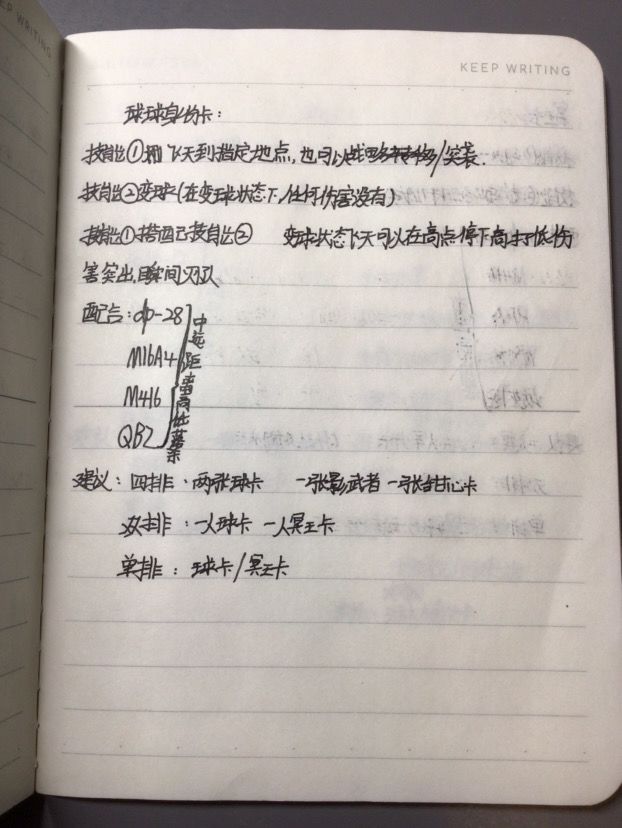 EP WRITING
KEEP WRITING
球球身份卡:
技能①: 飞天到指定地点,也可以战略转移/突袭.
技能②变球(在变球状态下,任何伤害没有)
技能①搭配技能② 变球状态飞天可以在高点停下高打低伤
害突出,瞬间灭队
配合: dp-28
M16A4
M416
QBZ
中远距离高低落杀
建议: 四排: 两张球卡 一张影武者 一张结心卡
双排: 一人球卡 一人冥王卡
单排: 球卡/冥王卡